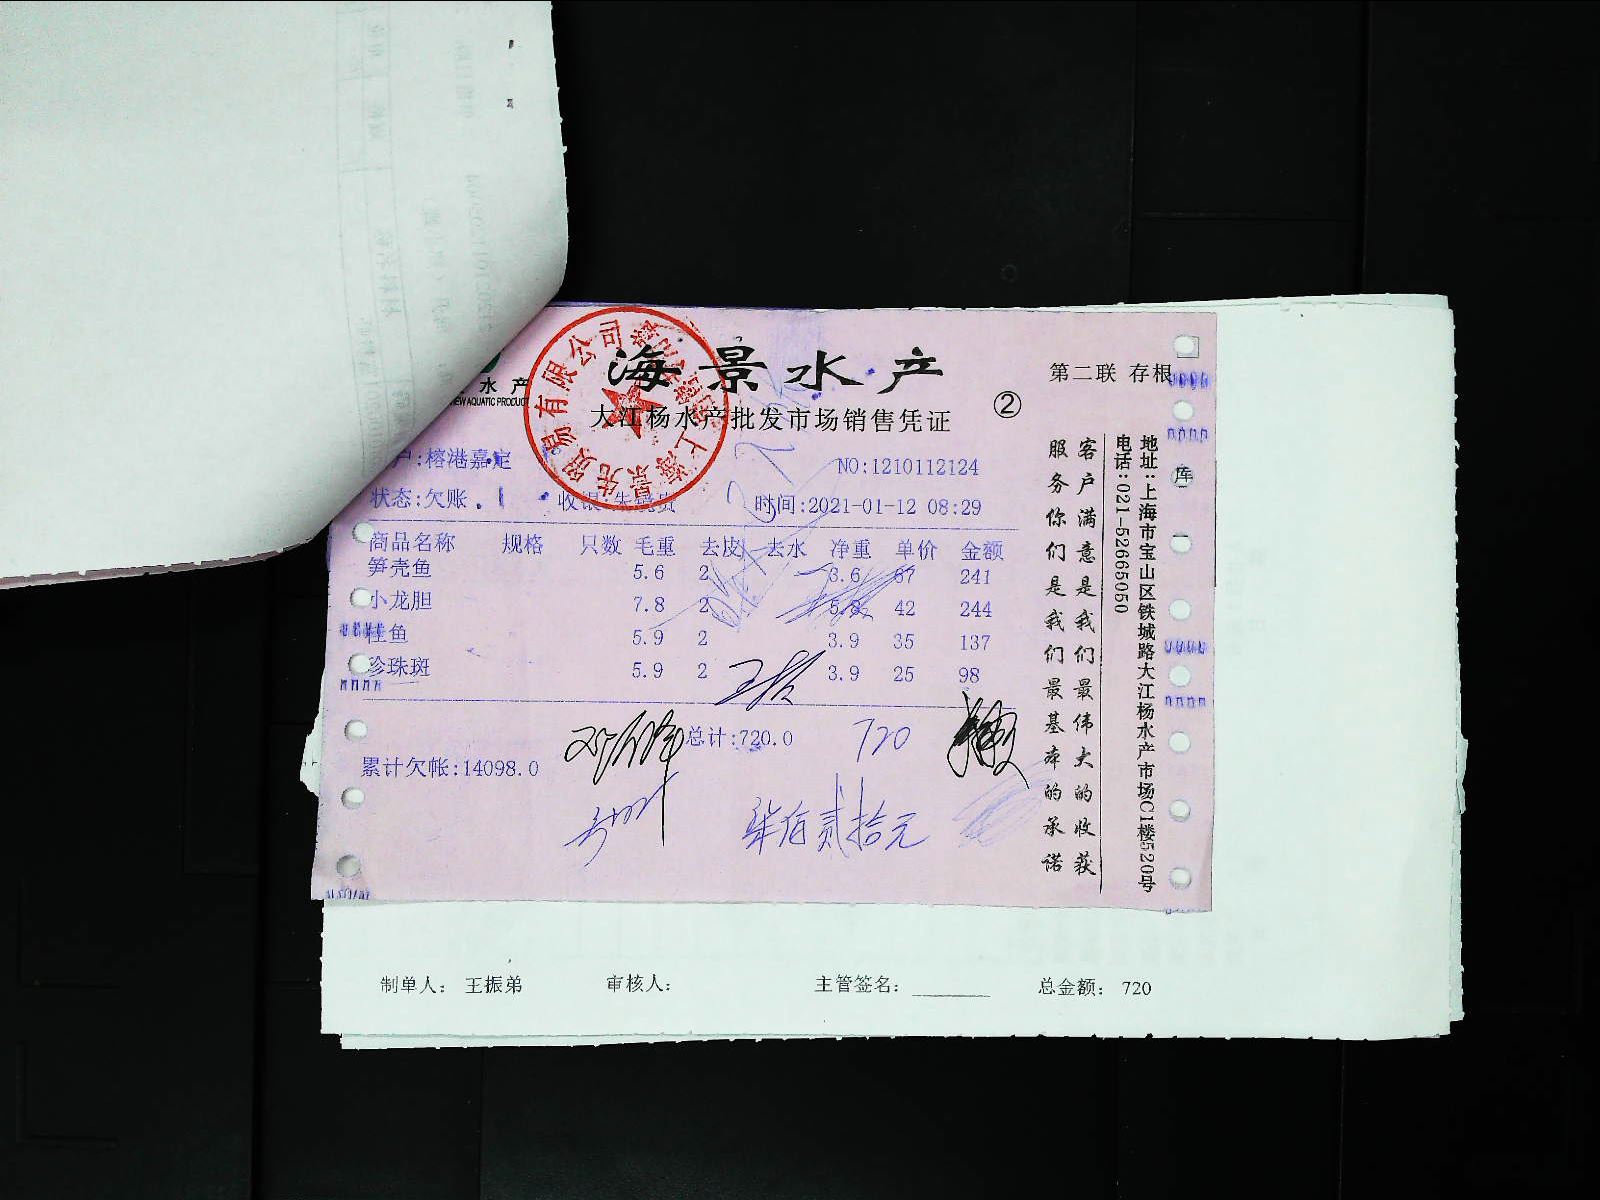 海景水产
大江杨水产批发市场销售凭证
② 第二联 存根
水产
VIEW AQUATIC PRODUCT
户:榕港嘉定 NO:1210112124
状态:欠账 收银: 时间:2021-01-12 08:29
商品名称 规格 只数 毛重 去皮 去水 净重 单价 金额
笋壳鱼 5.6 2 3.6 67 241
小龙胆 7.8 2 5.8 42 244
桂鱼 5.9 2 3.9 35 137
珍珠斑 5.9 2 3.9 25 98
总计:720.0 720
累计欠帐:14098.0
柒佰贰拾元
客户满意是我们最伟大的收获
服务你们是我们最基本的承诺
地址:上海市宝山区铁城路大江杨水产市场C1楼520号
电话:021-52665050
库
制单人: 王振弟 审核人: 主管签名: 总金额: 720